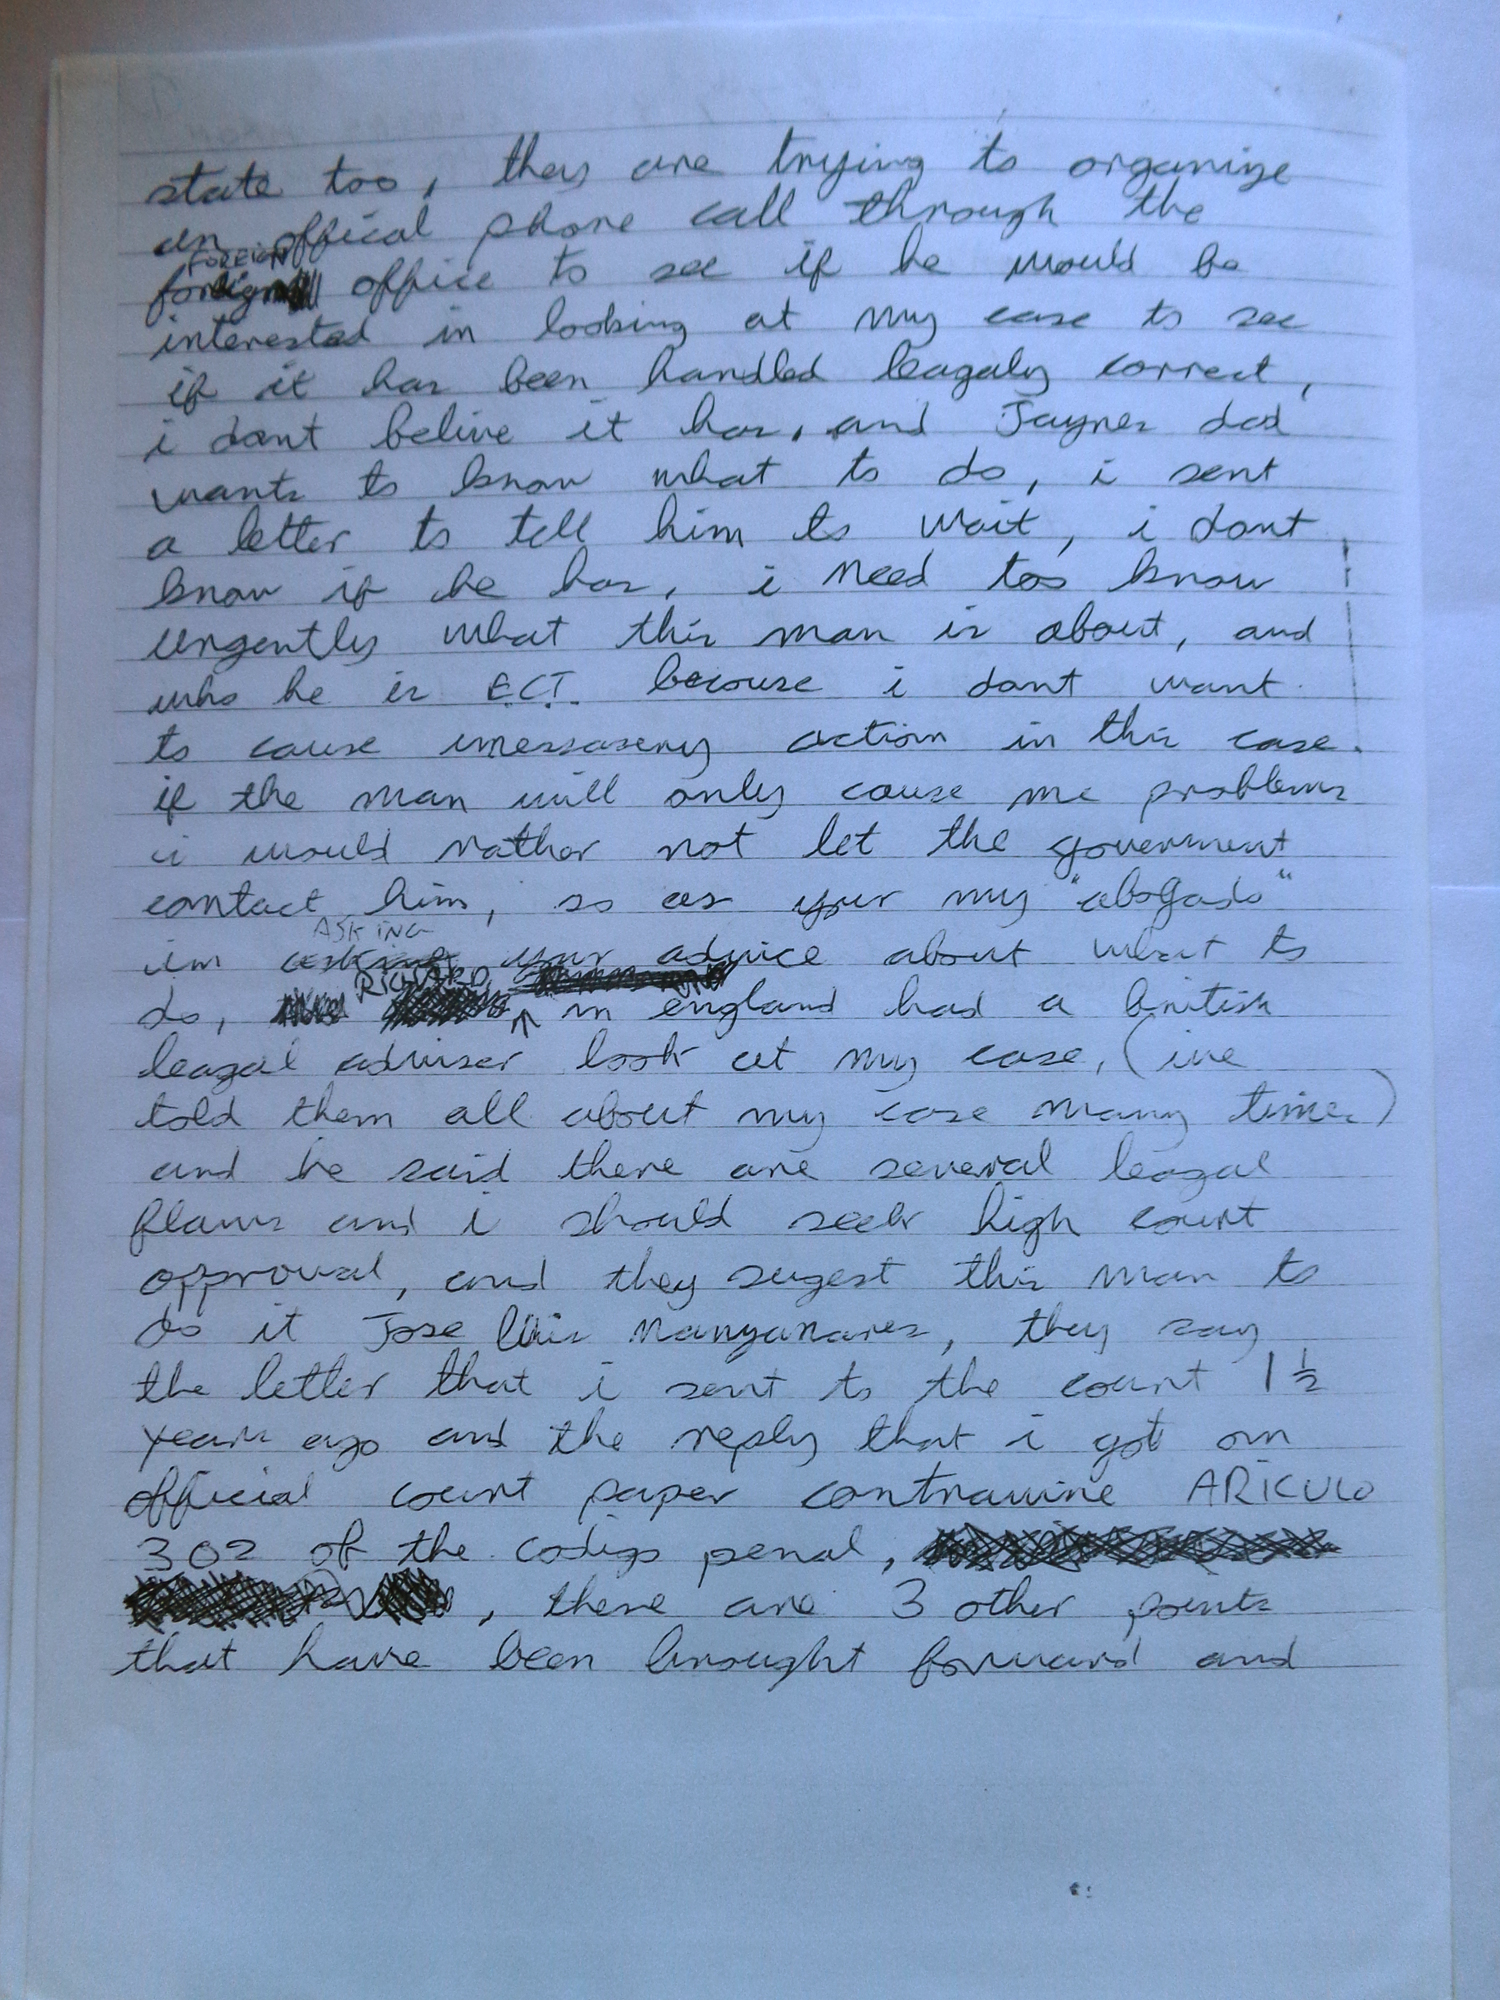 state too, they are trying to organize
an offical phone call through the
FOREIGN
foreign office to see if he would be
interested in looking at my case to see
if it has been handled leagaly correct,
i dont belive it has, and Jaynes dad
wants to know what to do, i sent
a letter to tell him to wait, i dont
know if he has, i need too know
urgently what this man is about, and
who he is E.C.T. becouse i dont want
to cause unessasery action in this case.
if the man will only cause me problems
i would rather not let the government
contact him, so as your my "abogado"
ASKING
im asking your advice about what to
RICHARD,
do, in england had a british
leagal adviser look at my case, (ive
told them all about my case many times)
and he said there are several leagal
flaws and i should seek high court
approval, and they sugest this man to
do it Jose luis Manyanares, they say
the letter that i sent to the court 1½
years ago and the reply that i got on
official court paper contravine ARICULO
302 of the codigo penal,
, there are 3 other points
that have been brought forward and